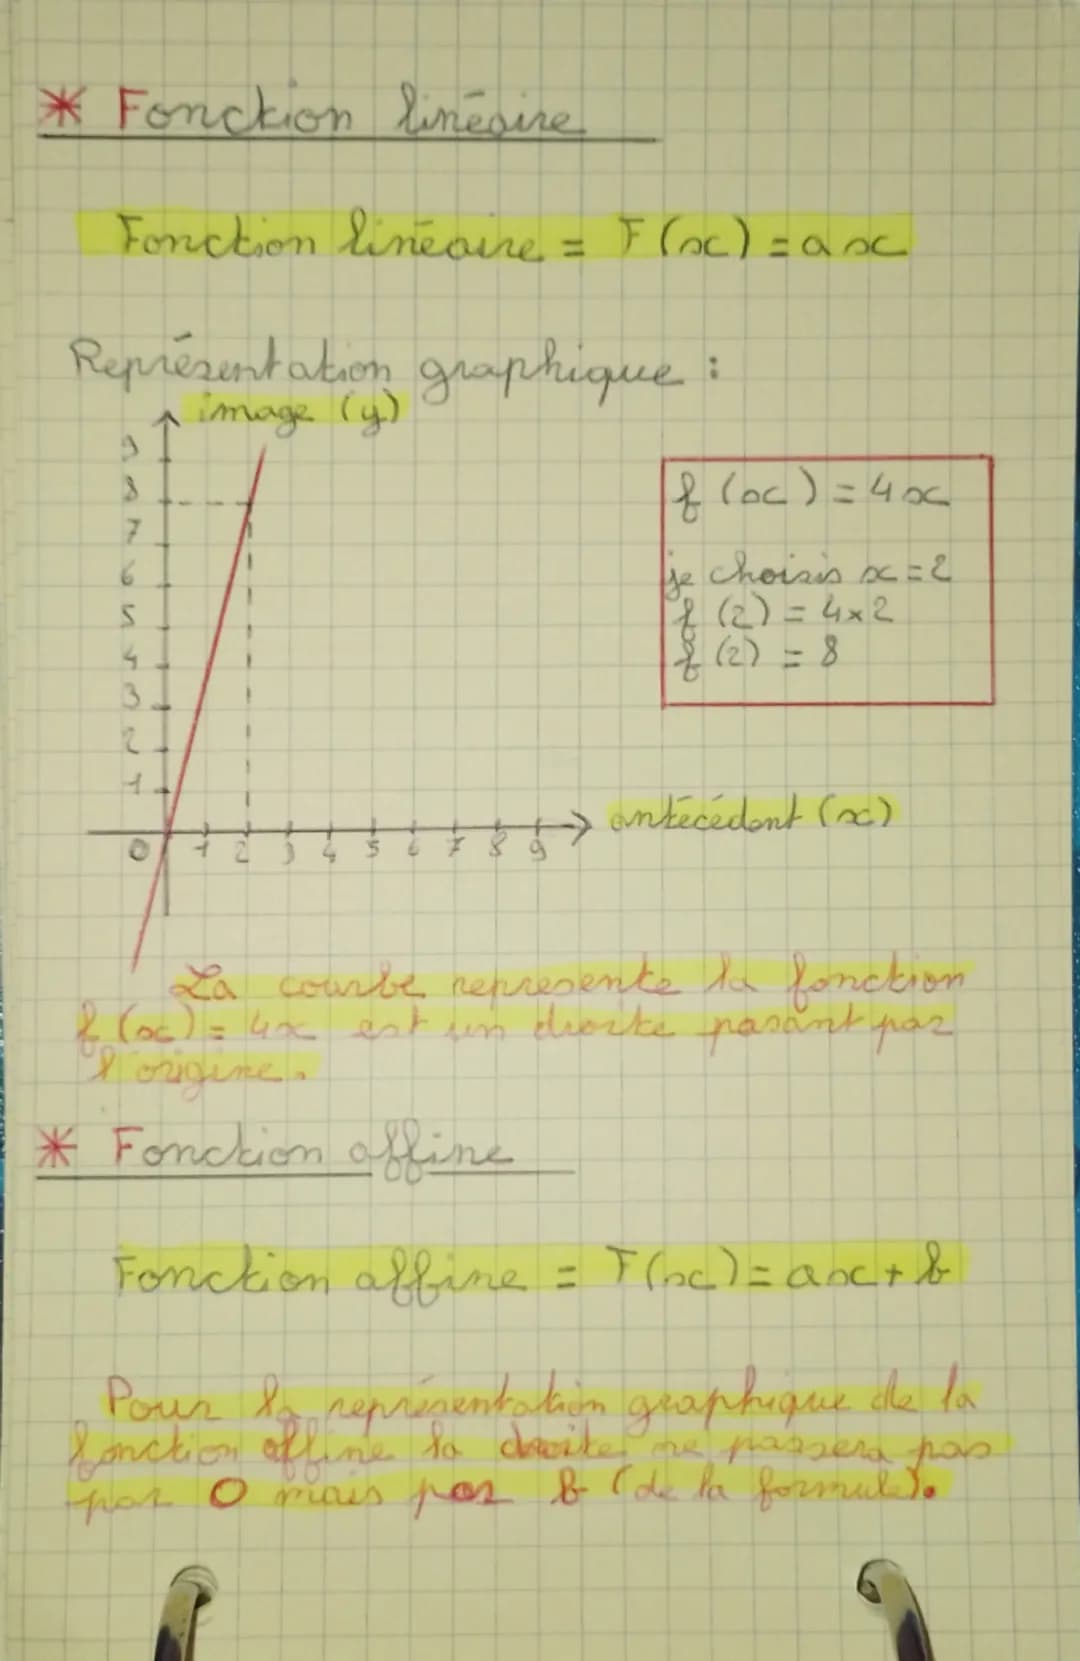 * Fonction linéaire
Fonction linéaire = F(x) = ax
Représentation graphique :
image (y)
9
8
7
6
5
4
3
2
1
f(x) = 4x
je choisis x = 2
f(2) = 4×2
f(2) = 8
antécédent (x)
0 1 2 3 4 5 6 7 8 9
La courbe represente la fonction
f(x) = 4x est un droite pasant par
l'origine.
* Fonction affine
Fonction affine = F(x) = ax + b
Pour la représentation graphique de la
fonction affine la droite ne passera pas
par 0 mais par b (de la formule).